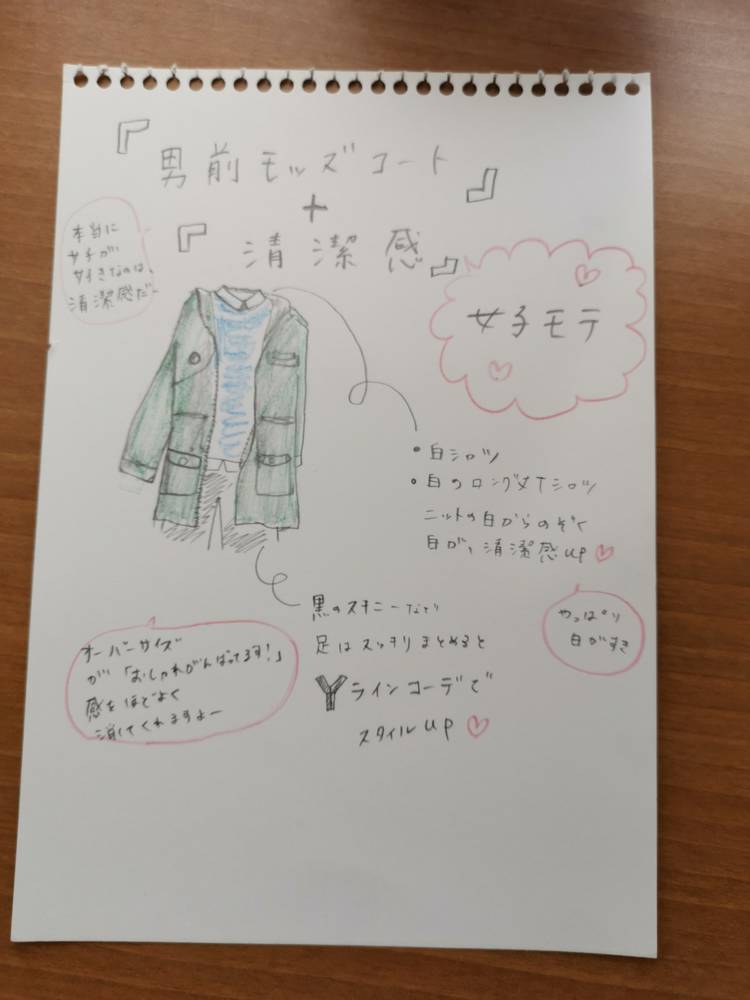 『男前モッズコート』
+
『清潔感』
本当に
女子が
好きなのは、
清潔感だ〜
女子モテ
・白シャツ
・白のロング丈Tシャツ
ニットの白からのぞく
白が、清潔感up♡
やっぱり
白がすき
黒のスキニーなどで
足はスッキリまとめると
Yラインコーデで
スタイルup♡
オーバーサイズ
が「おしゃれがんばってます!」
感をほどよく
消してくれますよー